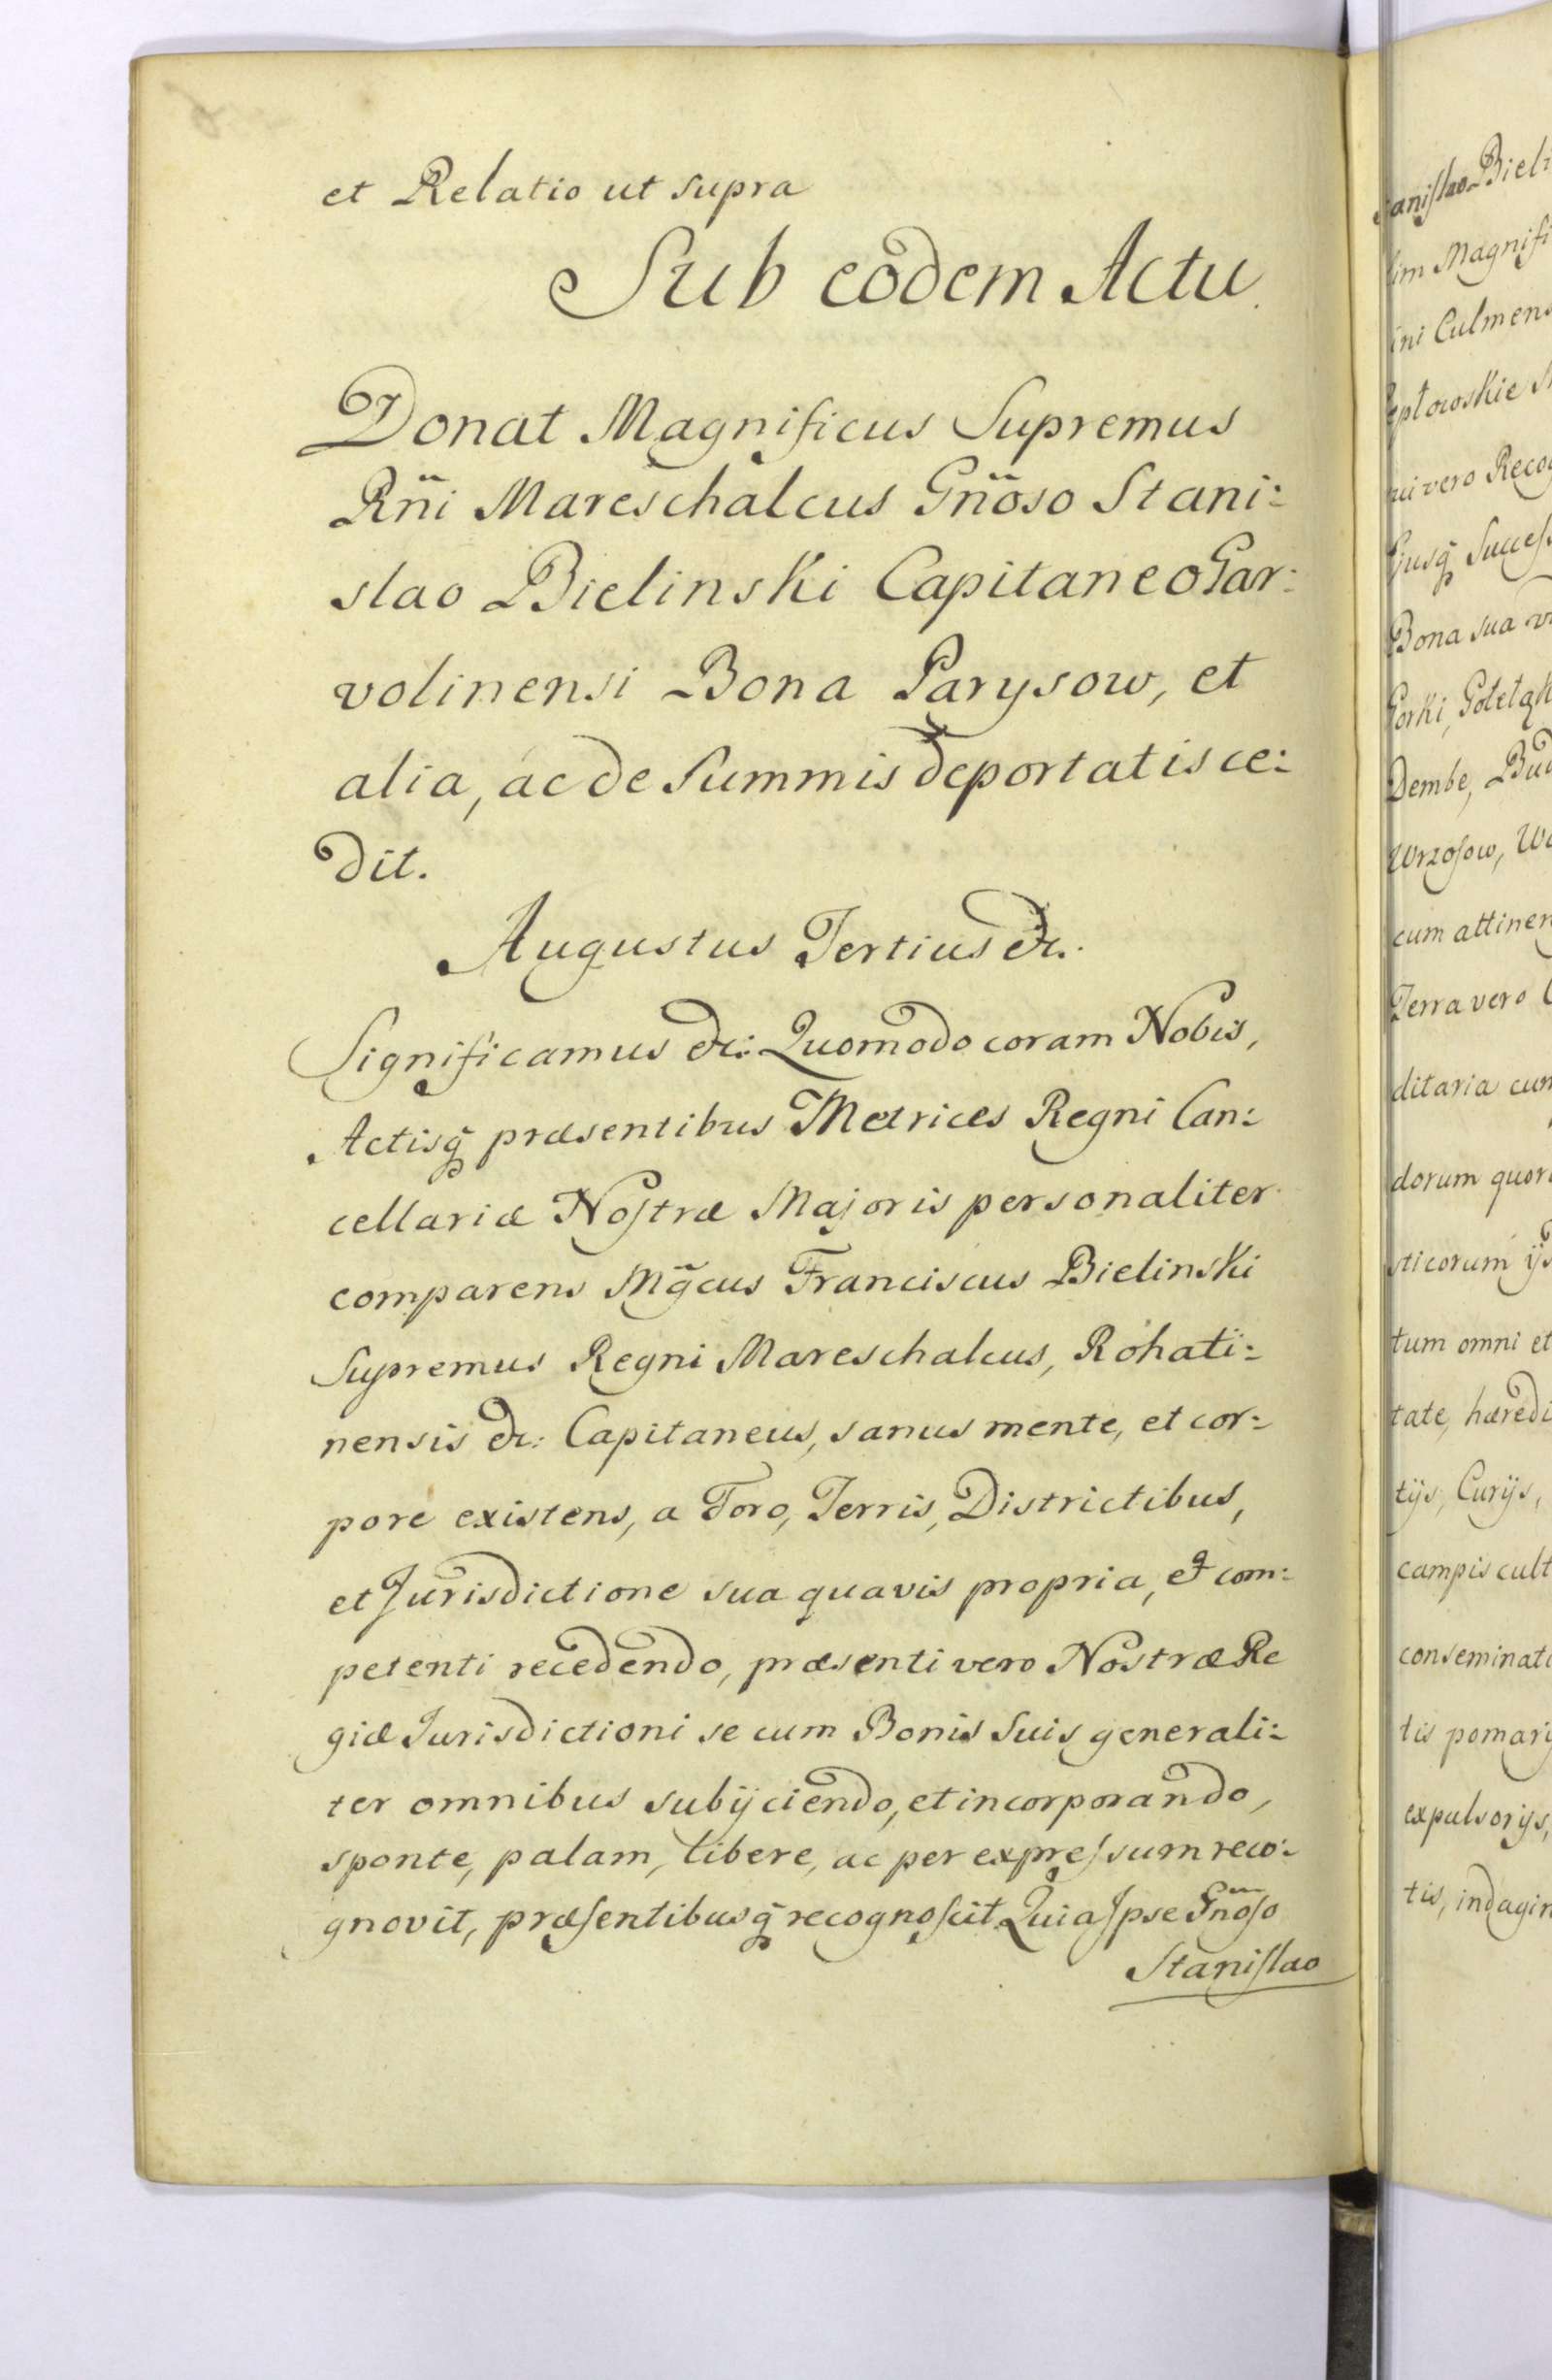 et Relatio ut supra
Sub eodem Actu
Donat Magnificus Supremus
Rñi Mareschalcus Gñoso Stani:
slao Bielinski Capitaneo Gar:
volinensi Bona Parysow, et
alia, ac de Summis deportatis ce:
dit.
Augustus Tertius &c.
Significamus &c: Quomodo coram Nobis,
Actisq̃ præsentibus Metrices Regni Can:
cellariæ Noſtræ Majoris personaliter
comparens Mg̃cus Franciscus Bielinski
Supremus Regni Mareschalcus, Rohati:
nensis &c: Capitaneus, sanus mente, et cor:
pore existens, a Foro, Terris, Districtibus,
et Jurisdictione sua quavis propria, et com:
petenti recedendo, præsenti vero Nostræ Re
giæ Jurisdictioni se cum Bonis Suis generali:
ter omnibus subijciendo, et incorporando,
sponte, palam, libere, ac per expreſsum reco:
gnovit, præſentibusq̃ recognoſcit. Quia Ipse Gñoſo
Staniſlao
Bieli
Magnifi
Culmens
vero Recog
Succeſs
Bona sua
Gorki,
Dembe, Bud
Wrzoſow,
cum attinen
Terra vero
ditaria cum
dorum quor
sticorum
tum omni et
tate, hæredi
tijs, Curijs,
campis cult
conseminat
tis pomarij
expulsorijs,
tis, indagin